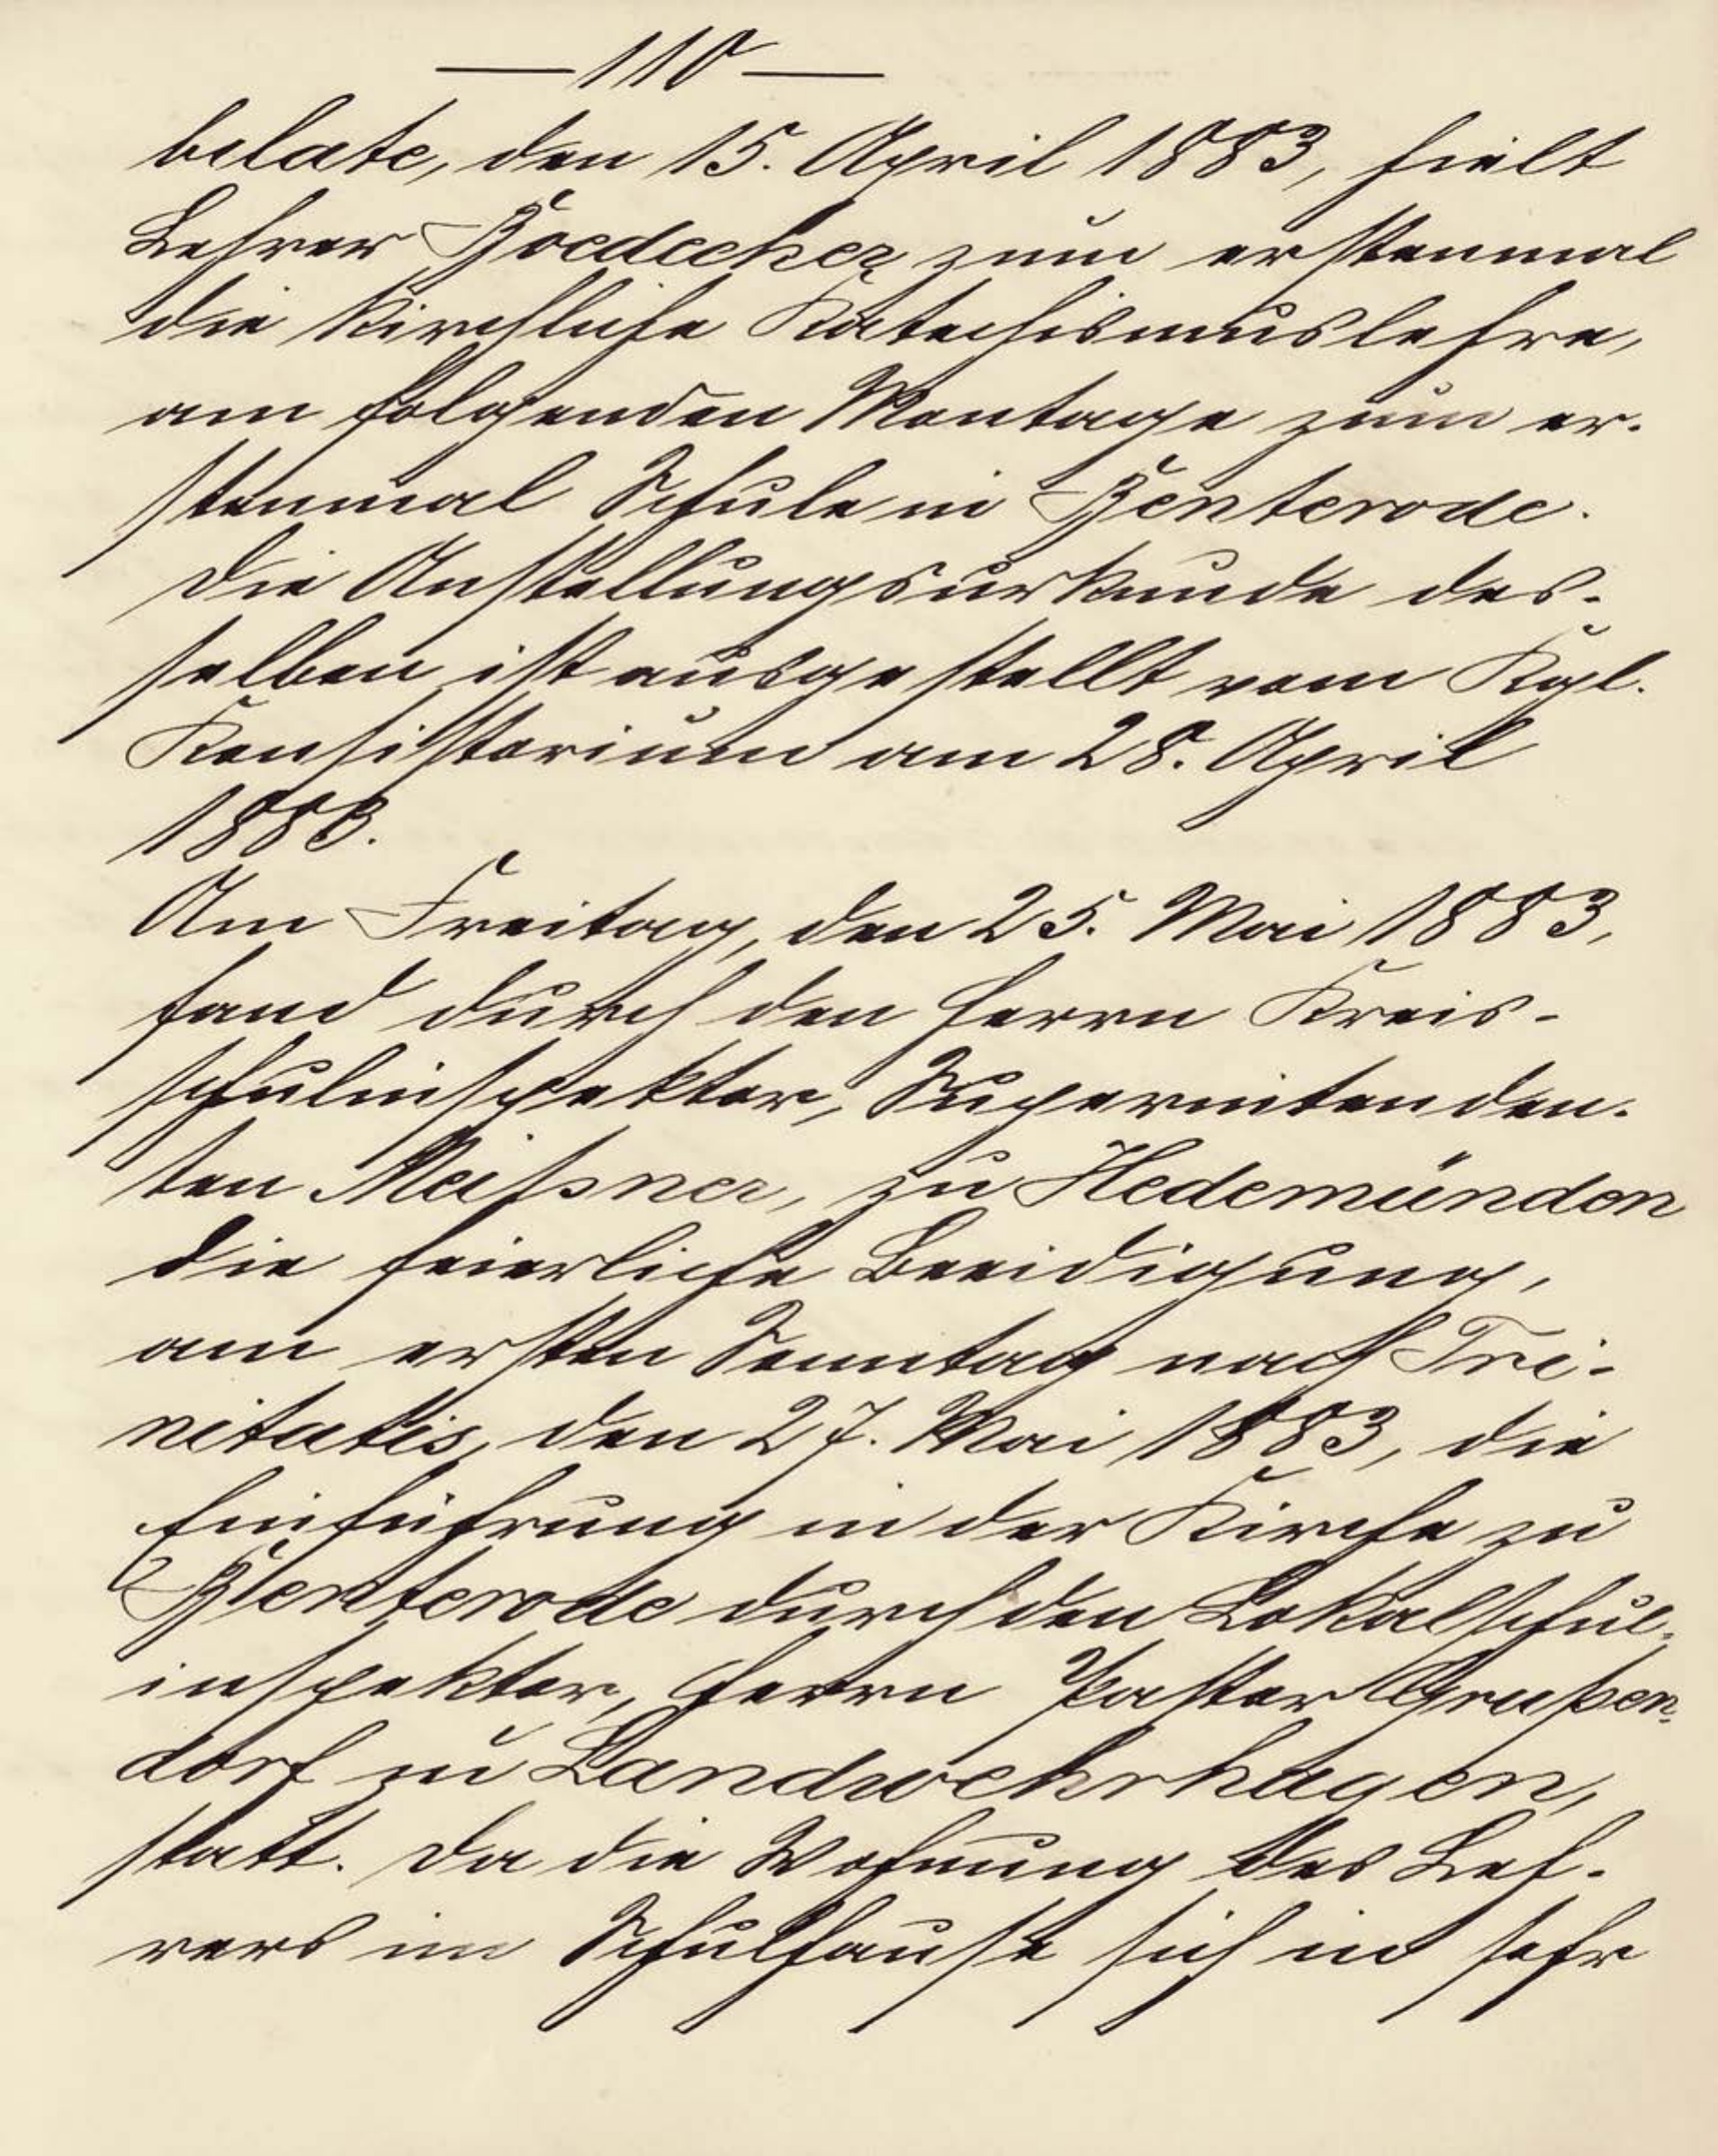 — 110 —
bilate, den 15. April 1883, hielt
Lehrer Boedecker zum erstenmal
die kirchliche Katechismuslehre,
am folgenden Montage zum er-
stenmal Schule in Benterode.
Die Anstellungsurkunde des-
selben ist ausgestellt vom Kgl.
Konsistorium am 28. April
1883.
Am Freitag, den 25. Mai 1883,
fand durch den Herrn Kreis-
schulinspektor, Superintenden-
ten Meißner, zu Hedemünden
die feierliche Beeidigung,
am ersten Sonntag nach Tri-
nitatis, den 27. Mai 1883, die
Einführung in der Kirche zu
Benterode durch den Lokalschul-
inspektor, Herrn Pastor Grußen-
dorf zu Landwehrhagen,
statt. Da die Wohnung des Leh-
rers im Schulhause sich in sehr